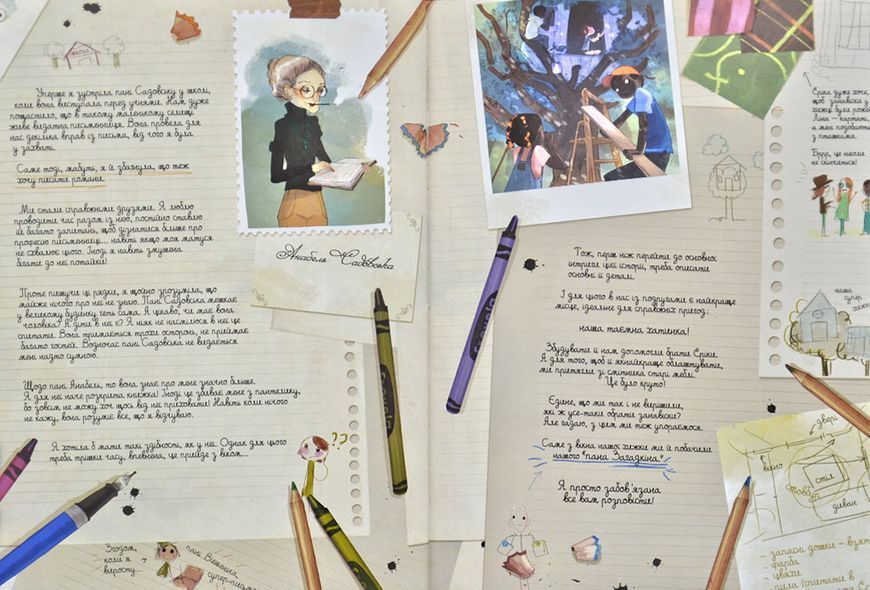 школа
Уперше я зустріла пані Садовську у школі,
коли вона виступала перед учнями. Нам дуже
пощастило, що в такому маленькому селищі
живе видатна письменниця. Вона провела для
нас декілька вправ із письма, від чого я була
у захваті.
Саме тоді, мабуть, я й збагнула, що теж
хочу писати романи.
Ми стали справжніми друзями. Я люблю
проводити час разом із нею, постійно ставлю
їй багато запитань, щоб дізнатися більше про
професію письменниці... навіть якщо моя матуся
не схвалює цього. Іноді я навіть змушена
бігати до неї потайки!
Проте пишучи ці рядки, я щойно зрозуміла, що
майже нічого про неї не знаю. Пані Садовська мешкає
у великому будинку геть сама. А цікаво, чи має вона
чоловіка? А діти в неї є? Я ніяк не насмілюся в неї це
спитати. Вона тримається трохи осторонь, не приймає
багато гостей. Водночас пані Садовська не видається
мені надто сумною.
Щодо пані Анабель, то вона знає про мене значно більше.
Я для неї наче розкрита книжка! Іноді це збиває мене з пантелику,
бо зовсім не можу хоч щось від неї приховати! Навіть коли нічого
не кажу, вона розуміє все, що я відчуваю.
Я хотіла б мати такі здібності, як у неї. Однак для цього
треба трішки часу, впевнена, це прийде з віком...
??
Згодом,
коли я
виросту...
пані Вишенька,
супер-письм
Анабель Садовська
Crayola
Тож, перш ніж перейти до основної
інтриги цієї історії, треба описати
основні її деталі.
І для цього в нас із подругами є найкраще
місце, ідеальне для справжніх пригод:
наша таємна хатинка!
Збудувати її нам допомогли брати Еріки.
А для того, щоб її якнайкраще облаштувати,
ми притягли зі смітника старі меблі.
Це було круто!
Єдине, що ми так і не вирішили,
які ж усе-таки обрати занавіски?
Але гадаю, з цим ми теж упораємося.
Саме з вікна нашої хижки ми й побачили
нашого "пана Загадкіна"
Я просто забов'язана
все вам розповісти!
Еріка дуже хоче,
щоб занавіски у
хижці були рожеві
Ліна – картаті,
а мені подобаються
з пташками.
Бррр, це ніколи
не скінчиться!
наша
супер
хижка
двері
вікно
стіл
диван
– запасні дошки – взяти
– фарба
– цвяхи
– пила (спитати в